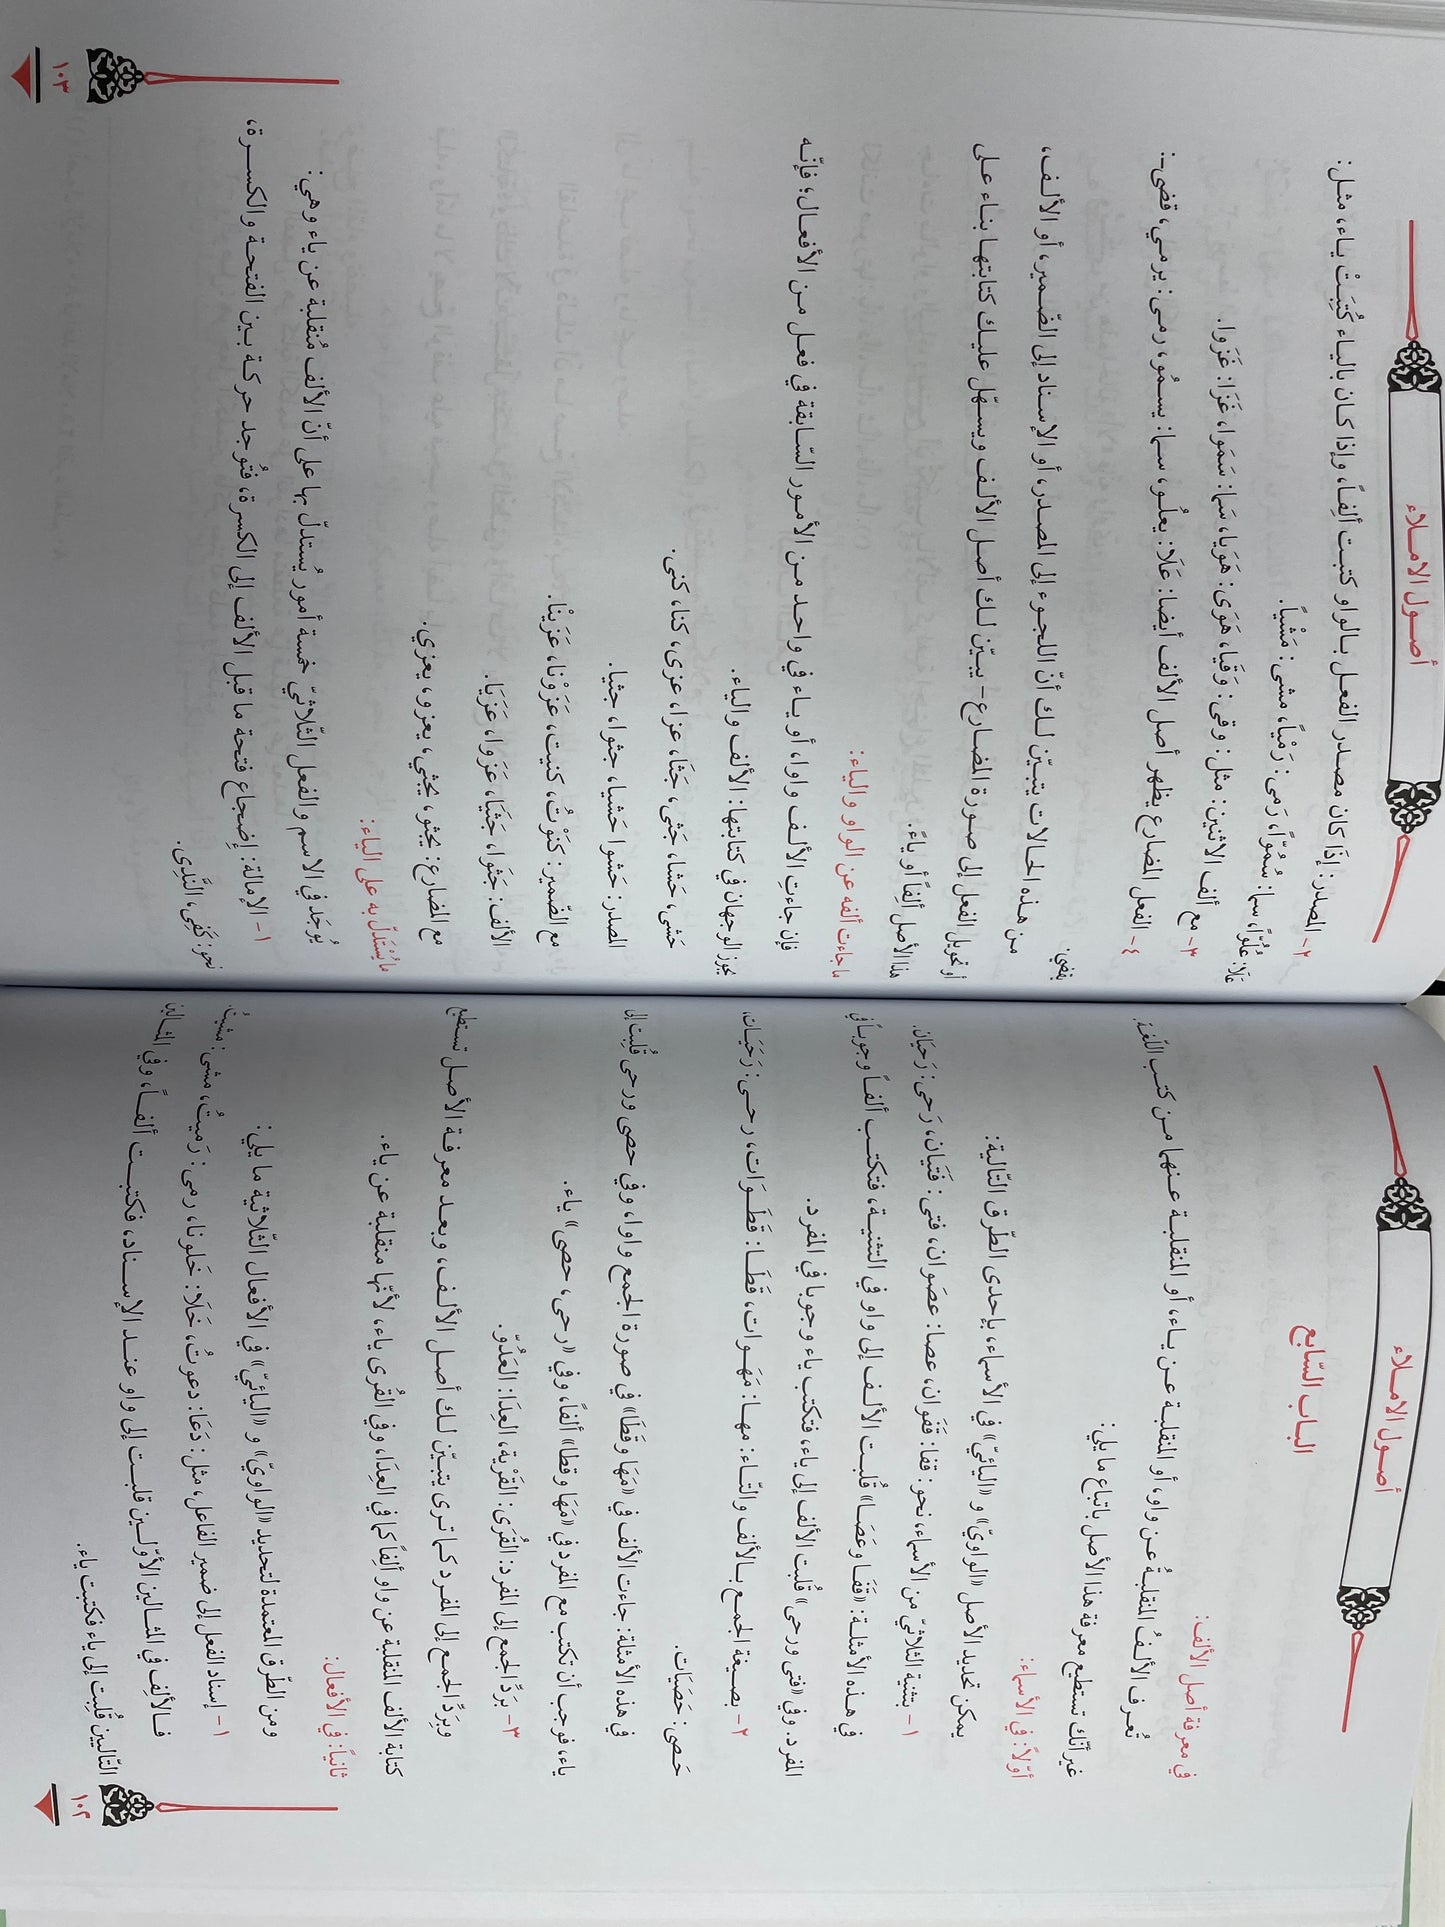 أصول الإملاء
الباب السّابع
في معرفة أصل الألف:
تُعرف الألفُ المنقلبةُ عن واو، أو المنقلبة عن ياء، أو المنقلبة عنهما من كتب اللّغة.
غير أنّك تستطيع معرفة هذا الأصل باتباع ما يلي:
أوّلاً: في الأسماء:
يمكن تحديد الأصل «الواويّ» و «اليائيّ» في الأسماء، بإحدى الطّرق التّالية:
١- بتثنية الثلاثيّ من الأسماء، نحو: قفا: قَفَوان، عصا: عصَوان، فتى: فَتَيان، رَحى: رَحيَان.
في هذه الأمثلة: «قَفَا وعَصَا» قُلبت الألف إلى واو في التثنية، فتكتب ألفاً وجوباً في
المفرد. وفي «فتى ورحى» قُلبت الألف إلى ياء، فتكتب ياء وجوبا في المفرد.
٢- بصيغة الجمع بالألف والتّاء: مها: مَهَوات، قَطَا: قَطَوَات، رحى: رَحَيَات،
حَصى: حَصَيَات.
في هذه الأمثلة: جاءت الألف في «مَهَا وقَطَا» في صورة الجمع واوا، وفي حصى ورحى قُلبت إلى
ياء، فوجب أن تكتب مع المفرد في «مَهَا وقطا» ألفاً، وفي «رحى، حصى» ياء.
٣- بَردِّ الجمع إلى المفرد: القُرَى: القَرْية، العِدَا: العَدُوّ.
وبَردِّ الجمع إلى المفرد كما ترى يتبيّن لك أصل الألف، وبعد معرفة الأصل تستطيع
كتابة الألف المنقلبة عن واو ألفاً كما في العِدَا، وفي القُرى ياء، لأنّها منقلبة عن ياء.
ثانياً: في الأفعال:
ومن الطّرق المعتمدة لتحديد «الواويّ» و «اليائيّ» في الأفعال الثّلاثية ما يلي:
١- إسناد الفعل إلى ضمير الفاعل، مثل: دَعَا: دعوتُ، خَلَا: خَلونا، رمى: رَميتُ، مشى: مشيتُ.
فالألف في المثالين الأوّلين قلبت إلى واو عند الإسناد، فكتبت ألفاً، وفي المثالين
التّاليين قُلبت إلى ياء فكتبت ياء.
١٠٢
أصول الإملاء
٢- المصدر: إذَا كان مصدر الفعل بالواو كتبت ألِفاً، وإذا كان بالياء كُتِبَتْ ياء، مثل:
عَلَا: عُلُوّاً، سما: سُمُوّاً، رَمى: رَمْياً، مشى: مَشْياً.
٣- مع ألف الاثنين: مثل: وقى: وَقَيا، هَوَى: هَوَيا، سَما: سَمَوا، غَزَا: غَزَوا.
٤- الفعل المضارع يظهر أصل الألف أيضا: عَلَا: يعلُو، سما: يسمُو، رمى: يرمي، قضى:
يقضي.
من هذه الحالات يتبيّن لك أنّ اللجوء إلى المصدر، أو الإسناد إلى الضّمير، أو الألف،
أو تحويل الفعل إلى صورة المضارع- يبيّن لك أصل الألف ويسهّل عليك كتابتها بناء على
هذا الأصل ألِفاً أو ياءً.
ما جاءت ألفه عن الواو والياء:
فإن جاءتِ الألف واوا، أو ياء في واحد من الأمور السّابقة في فعل من الأفعال؛ فإنّه
يجوز الوجهان في كتابتها: الألف والياء.
حَشى، حَشا، جَثى، جَثَا، عزا، عزى، كنا، كنى.
المصدر: حَشوا حَشيا، جثوا، جثيا.
مع الضّمير: كنَوْتُ، كنيت، عَزَوْنا، عَزَيْنْا.
الألف: جَثَوا، جَثَيَا، عَزَوا، عَزَيَا.
مع المضارع: يجثو، يجثي، يعزو، يعزي.
ما يُسْتَدَلّ به على الياء:
يُوجَد في الاسم والفعل الثّلاثيّ خمسة أمور يُستدلّ بها على أنّ الألف مُنقلبة عن ياء وهي:
١- الإمالة: إضجاع فتحة ما قبل الألف إلى الكسرة، فتُوجد حركة بين الفتحة والكسرة،
نحو: كَفِى، النَّدِى.
١٠٣